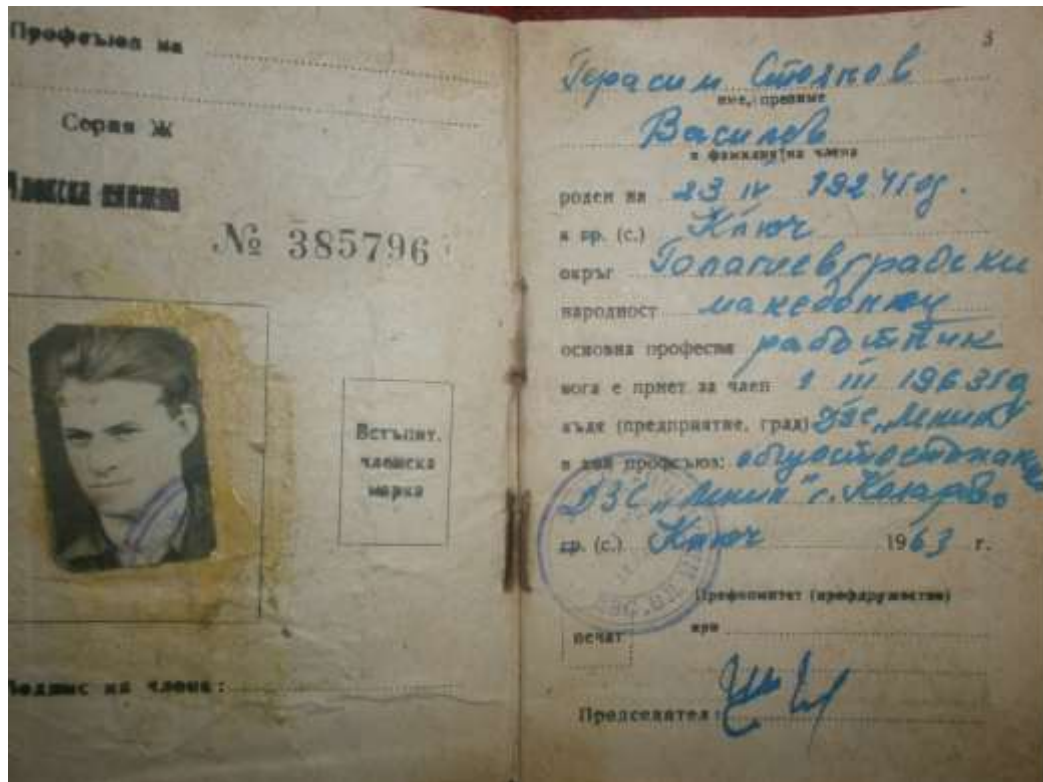 Профсъюз на
Серия Ж
Членска книжка
№ 385796
Встъпит.
членска
марка
Подпис на члена:
3
Герасим Стоянов
име, презиме
Василев
и фамилия на члена
роден на 23 IV 1924 год.
в гр. (с.) Ключ
окръг Благоевградски
народност македонец
основна професия работник
кога е приет за член 1 III 1963 г
къде (предприятие, град) ДЗС „Ленин“
в кой профсъюз:
ДЗС „Ленин“ с.
гр. (с.) Ключ 1963 г.
Профкомитет (профдружество)
при
печат
Председател: